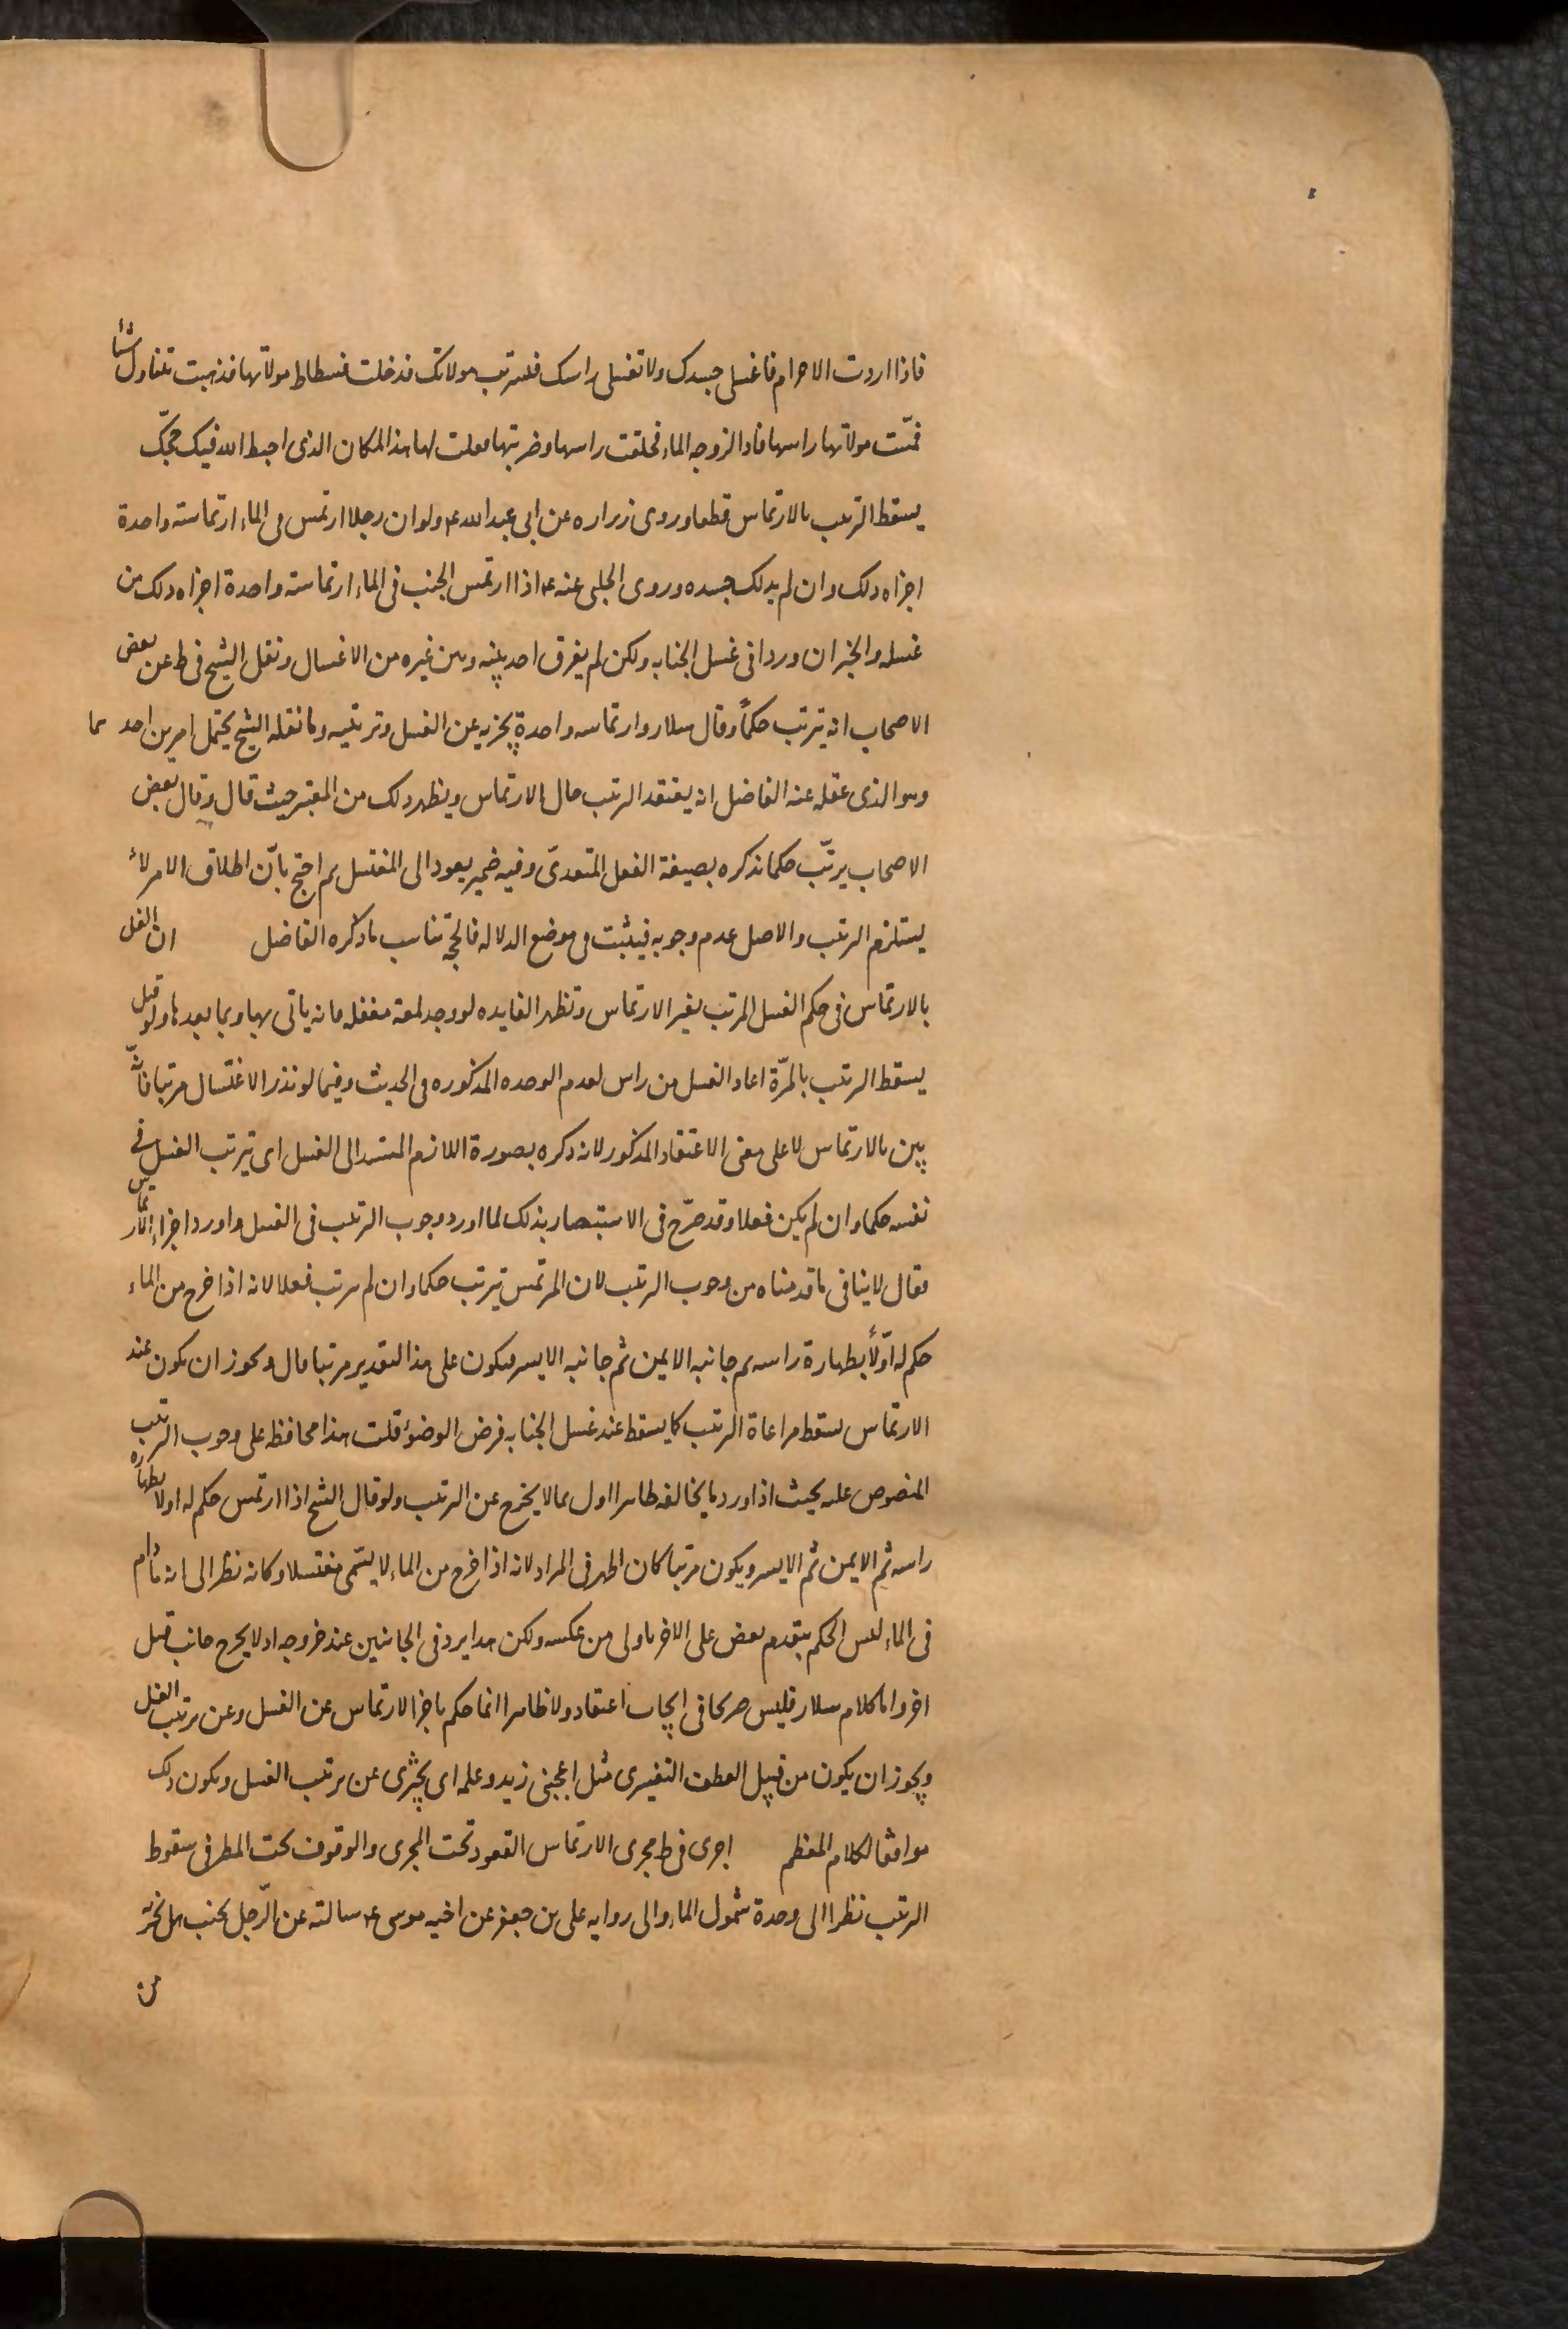 فاذا اردت الاحرام فاغسلى جسدك ولا تغسلى راسك فتستريب مولاتك فدخلت فسطاط مولاتها فذهبت تتناول شيئا
فمسّت مولاتها راسها فاذا لزوجه الماء فحلقت راسها وضربتها فقلت لها هذا المكان الذى احبط الله فيك حجّك
يسقط الترتيب بالارتماس قطعا وروى زراره عن ابى عبد الله ع ولو ان رجلا ارتمس فى الماء ارتماسة واحدة
اجزاه ذلك وان لم يدلك جسده وروى الحلبى عنه ع اذا ارتمس الجنب فى الماء ارتماسة واحدة اجزاه ذلك من
غسله والخبران وردا فى غسل الجنابه ولكن لم يفرق احد بينه وبين غيره من الاغسال ونقل الشيخ فى ط عن بعض
الاصحاب انه يترتب حكماً وقال سلار وارتماسه واحدة يجزيه عن الغسل وترتيبه وما نقله الشيخ يحتمل امرين احدهما
وهو الذى عقله عنه الفاضل انه يعتقد الترتيب حال الارتماس ويظهر ذلك من المعتبر حيث قال وقال بعض
الاصحاب يرتّب حكما فذكره بصيغة الفعل المتعدىّ وفيه ضمير يعود الى المغتسل ثم احتج بانّ اطلاق الامر لا
يستلزم الترتيب والاصل عدم وجوبه فيثبت فى موضع الدلاله فالحجّة تناسب ما ذكره الفاضل ان الغسل
بالارتماس فى حكم الغسل المرتب بغير الارتماس وتظهر الفايده لو وجد لمعة مغفله فانه ياتى بها وبما بعدها ولو قيل
يسقط الترتيب بالمرّة اعاد الغسل من راس لعدم الوحده المذكوره فى الحديث وفيما لو نذر الاغتسال مرتبا فانّه
يبين بالارتماس لا على معنى الاعتقاد المذكور لانه ذكره بصورة اللازم المسند الى الغسل اى يترتب الغسل فى
نفسه حكما وان لم يكن فعلا وقد صرّح فى الاستبصار بذلك لما اورد وجوب الترتيب فى الغسل واورد اجزاء الارتماس
فقال لا ينافى ما قدمناه من وجوب الترتيب لان المرتمس يترتب حكما وان لم يترتب فعلا لانه اذا خرج من الماء
حكم له اوّلاً بطهارة راسه ثم جانبه الايمن ثم جانبه الايسر فيكون على هذا التقدير مرتبا قال ويجوز ان يكون عند
الارتماس يسقط مراعاة الترتيب كما يسقط عند غسل الجنابه فرض الوضوء قلت هذا محافظه على وجوب الترتيب
المنصوص عليه بحيث اذا ورد ما يخالفه ظاهرا اول بما لا يخرج عن الترتيب ولو قال الشيخ اذا ارتمس حكم له اولا بطهاره
راسه ثم الايمن ثم الايسر ويكون مرتبا كان اظهر فى المراد لانه اذا خرج من الماء لا يسّمى مغتسلا وكانه نظر الى انه ما دام
فى الماء ليس الحكم بتقدم بعض على الاخر باولى من عكسه ولكن هذا يرد فى الجانبين عند خروجه اذ لا يخرج جانب قبل
اخر واما كلام سلار فليس صريحا فى ايجاب اعتقاد ولا ظاهرا انما حكم باجزا الارتماس عن الغسل وعن ترتيب الغسل
ويجوز ان يكون من قبيل العطف التفسيرى مثل اعجبنى زيد وعلمه اى يجتزى عن ترتيب الغسل ويكون ذلك
موافقا لكلام المعظم اجرى فى ط مجرى الارتماس القعود تحت المجرى والوقوف تحت المطر فى سقوط
الترتيب نظرا الى وحدة شمول الماء والى روايه على بن جعفر عن اخيه موسى ع سالته عن الرّجل يجنب هل يجزئه
من